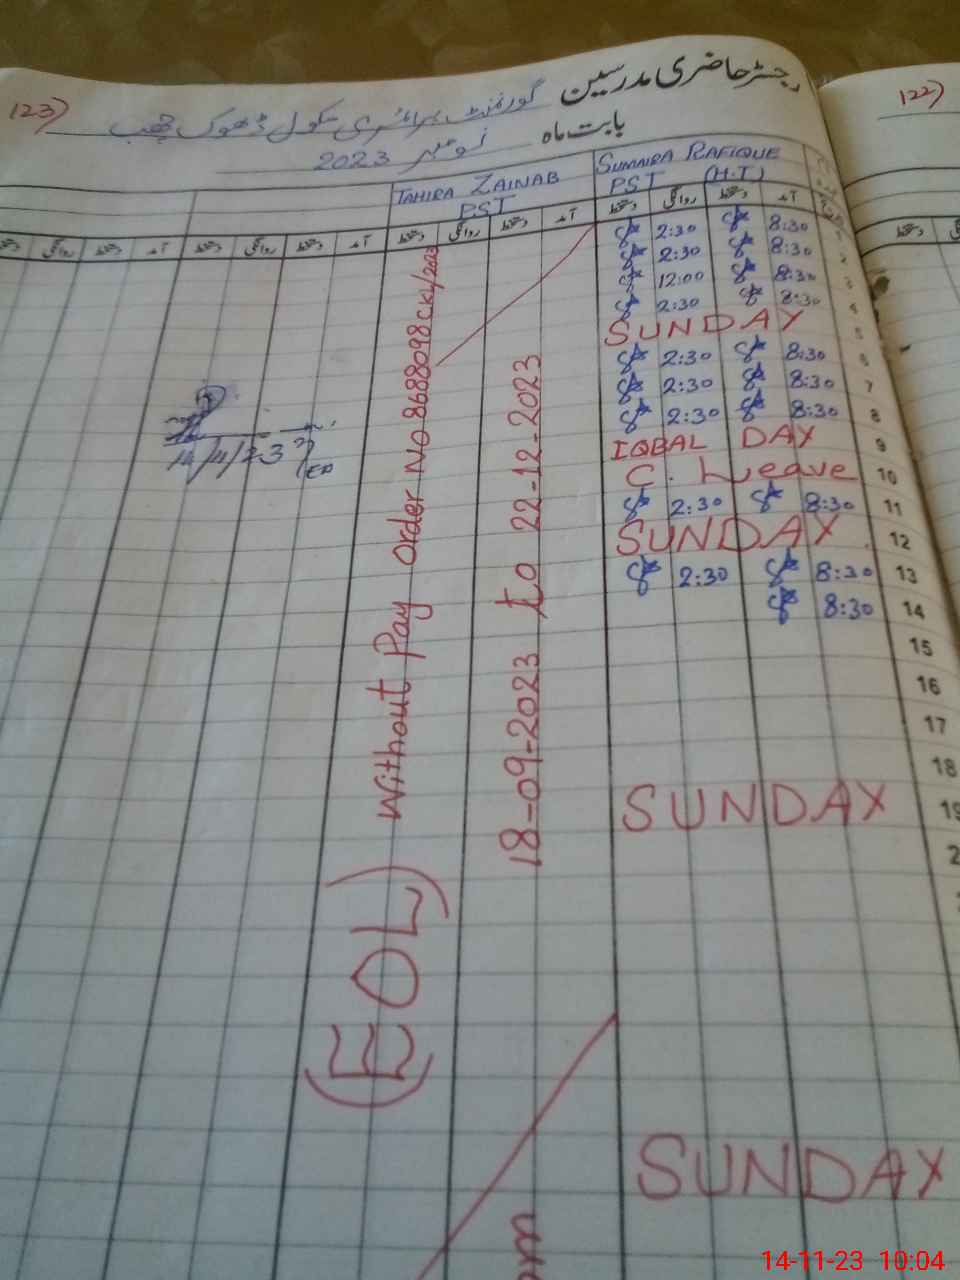 123)
122)
رجسٹر حاضری مدرسین
گورنمنٹ پرائمری سکول ڈھوک
بابت ماہ نومبر 2023
TAHIRA ZAINAB
PST
SUMAIRA RAFIQUE
PST (H.T)
دستخط روانگی دستخط آمد دستخط روانگی دستخط آمد دستخط روانگی دستخط آمد
2:30 8:30 1
2:30 8:30 2
12:00 8:30 3
2:30 8:30 4
SUNDAY 5
2:30 8:30 6
2:30 8:30 7
2:30 8:30 8
IQBAL DAY 9
C. Leave 10
2:30 8:30 11
SUNDAY 12
2:30 8:30 13
8:30 14
15
16
17
18
SUNDAY 19
SUNDAY
(EOL) Without Pay Order No 8688098 CKL/2023
18-09-2023 to 22-12-2023
14/11/23
14-11-23 10:04